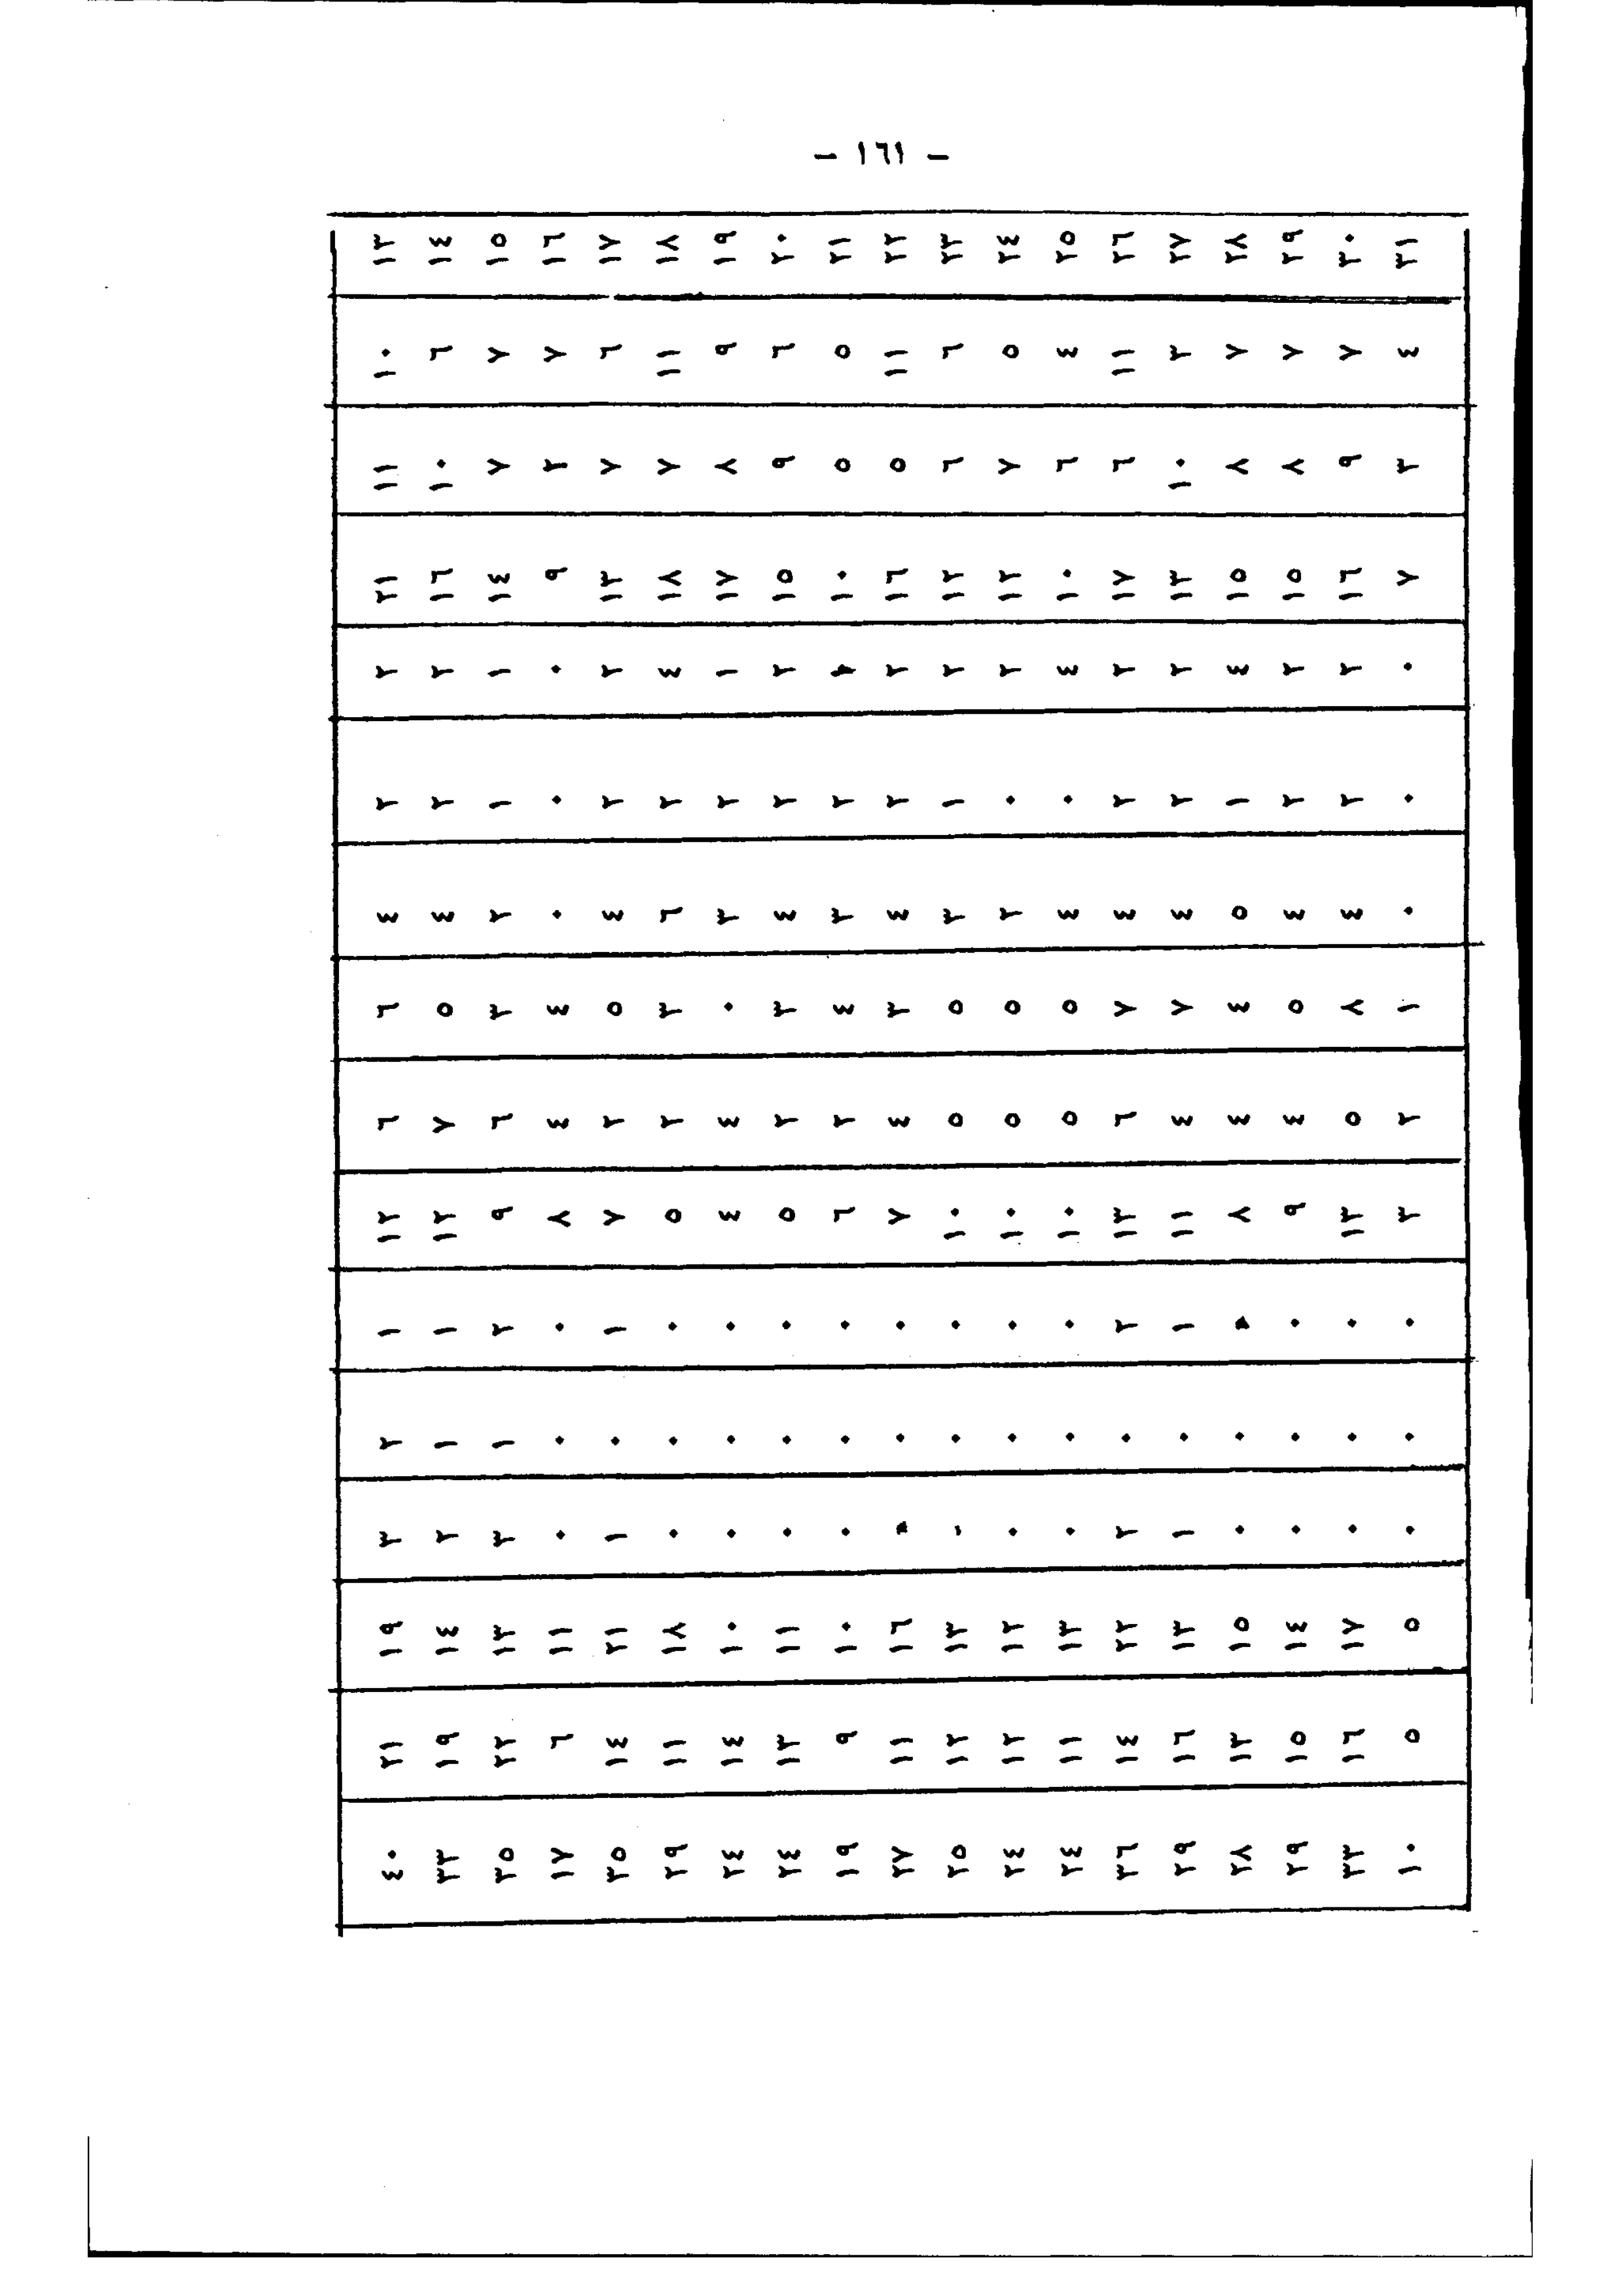 - ١٦١ -
١٣ ١٠ ١١ ٢١ ٢ ٢ ٤ ٦ ٦ ١٢ ١ ٢ ٣ ١٩ ٢١ ٤٠
١٤ ٦ ١٠ ١٦ ٢ ٢ ٤ ٥ ٧ ١٢ ١ ١ ٢ ١٤ ١٩ ٣٣
١٥ ٧ ٧ ١٤ ١ ١ ٢ ٣ ٦ ٩ ٢ ١ ٣ ١٣ ٢٢ ٣٥
١٦ ٧ ٢ ٩ ٠ ٠ ٠ ٤ ٤ ٨ ٠ ٠ ٠ ١١ ٦ ١٧
١٧ ٦ ٧ ١٣ ٢ ٢ ٤ ٥ ٢ ٧ ١ ٠ ١ ٢١ ١٤ ٣٥
١٨ ١١ ٧ ١٨ ٤ ٢ ٦ ٣ ٢ ٥ ٠ ٠ ٠ ١٨ ١١ ٢٩
١٩ ٩ ٨ ١٧ ١ ٢ ٣ ٠ ٤ ٤ ٠ ٠ ٠ ١٠ ١٤ ٢٤
٢٠ ٦ ٩ ١٥ ٢ ٢ ٤ ٣ ٢ ٥ ٠ ٠ ٠ ١١ ١٣ ٢٤
٢١ ٥ ٥ ١٠ ٢ ٣ ٤ ٢ ٦ ٠ ٠ ٠ ١٠ ٩ ١٩
٢٢ ١١ ٥ ١٦ ٢ ٢ ٤ ٣ ٤ ٧ ٠ ٠ ١٦ ١١ ٢٧
٢٣ ٦ ٦ ١٢ ٢ ١ ٣ ٥ ٥ ١٠ ٠ ٠ ٠ ١٣ ١٢ ٢٥
٢٤ ٥ ٧ ١٢ ٢ ٠ ٢ ٥ ٥ ١٠ ٠ ٠ ٠ ١٢ ١٢ ٢٤
٢٥ ٤ ٦ ١٠ ٤ ٠ ٤ ٥ ٥ ١٠ ٠ ٠ ٠ ١٣ ١١ ٢٤
٢٦ ١١ ٦ ١٧ ٢ ٢ ٤ ٧ ٦ ١٣ ٢ ٠ ٢ ٢٢ ١٤ ٣٦
٢٧ ٣ ١٠ ١٣ ٢ ٢ ٤ ٧ ٤ ١١ ١ ٠ ١ ١٣ ١٦ ٢٩
٢٨ ٧ ٨ ١٥ ٤ ١ ٥ ٤ ٤ ٨ ٠ ٠ ١٥ ١٣ ٢٨
٢٩ ٧ ٨ ١٥ ٢ ٢ ٤ ٥ ٤ ٩ ٠ ٠ ٠ ١٤ ١٥ ٢٩
٣٠ ٧ ٩ ١٦ ٢ ٢ ٤ ٨ ٥ ١٣ ٠ ٠ ٠ ١٧ ١٦ ٣٣
٣١ ٤ ٣ ٧ ٠ ٠ ٠ ١ ٢ ٣ ٠ ٠ ٠ ٥ ٥ ١٠